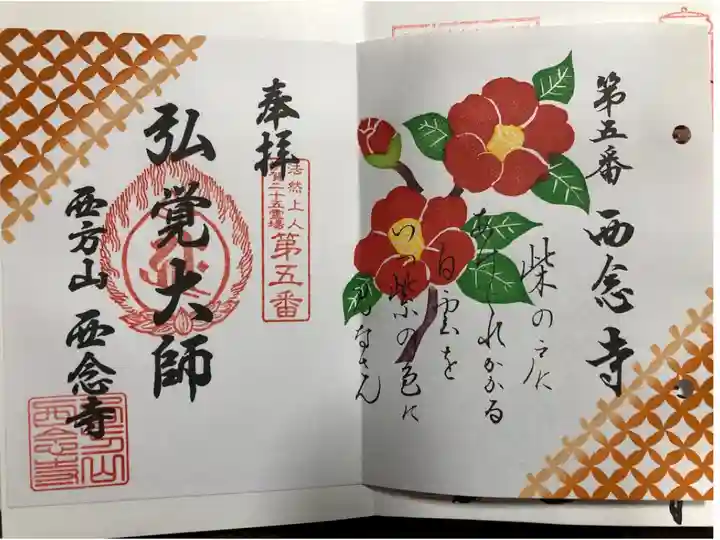 第五番 西念寺
柴の戸に
あけくれかかる
白雲を
いつ紫の色に
奉拝
法然上人
滋賀二十五霊場
第五番
弘覚大師
西方山 西念寺
西方山
西念寺